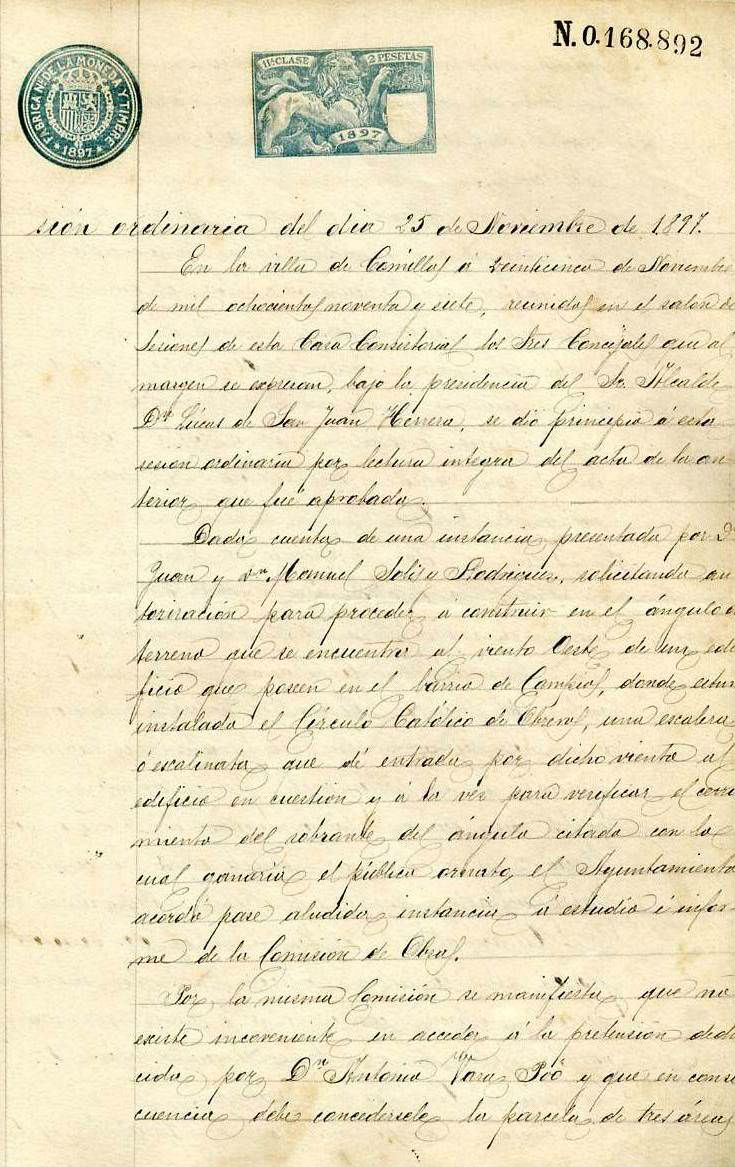 N. 0.168.892
FÁBRICA NL. DE LA MONEDA Y TIMBRE
1897
11ª CLASE 2 PESETAS
1897
sión ordinaria del dia 25 de Noviembre de 1897.
En la villa de Comillas á veinticinco de Noviembre
de mil ochocientos noventa y siete, reunidos en el salon de
sesiones de esta Casa Consistorial los Sres Concejales que al
margen se expresan, bajo la presidencia del Sr. Alcalde
Dn Lúcas de San Juan Herrera, se dió principio á esta
sesion ordinaria por lectura integra del acta de la an
terior que fué aprobada.
Dada cuenta de una instancia presentada por Dn
Juan y Dn. Manuel Solis y Rodriguez, solicitando au
torización para proceder á construir en el ángulo d
terreno que se encuentra al viento Oeste de un edi
ficio que poseen en el barrio de Campíos, donde estuvo
instalado el Círculo Católico de Obreros, una escalera
ó escalinata que dé entrada por dicho viento al
edificio en cuestión y á la vez para verificar el cerra
miento del sobrante del ángulo citado con lo
cual ganaria el público ornato, el Ayuntamiento
acordó pase aludida instancia á estudio é infor-
me de la Comisión de Obras.
Por la misma Comisión se manifiesta que no
existe incoveniente en acceder á la pretension dedu
cida por Dn Antonio Vara Póo y que en conse
cuencia debe concedersele la parcela de tres áreas